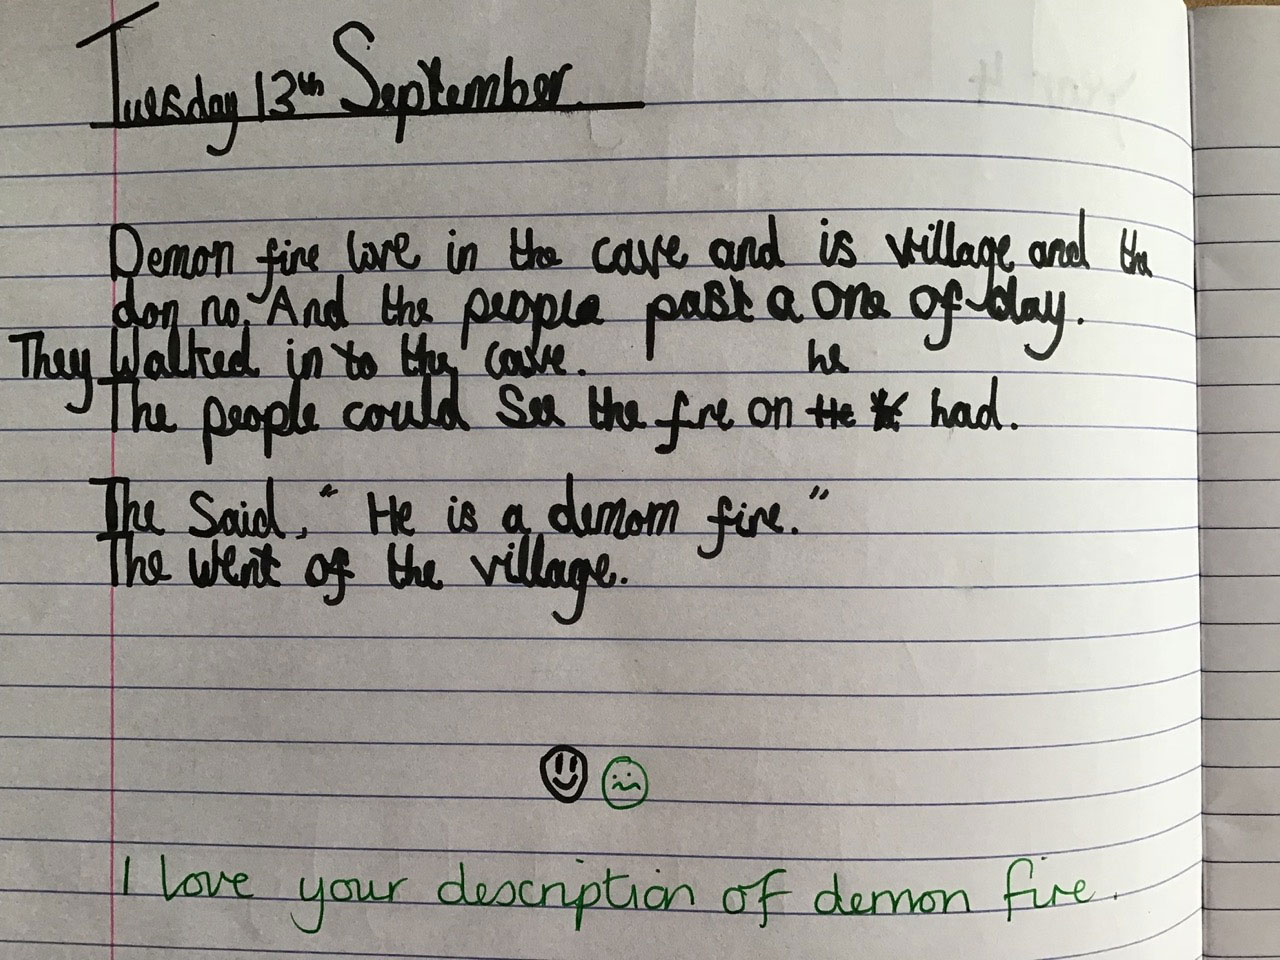 Tuesday 13th September
Demon fire live in the cave and is village and the
don no. And the people past a one of day.
They walked in to the cave.
he
The people could see the fire on had.
The Said, " He is a demom fire."
The went of the village.
I love your description of demon fire.